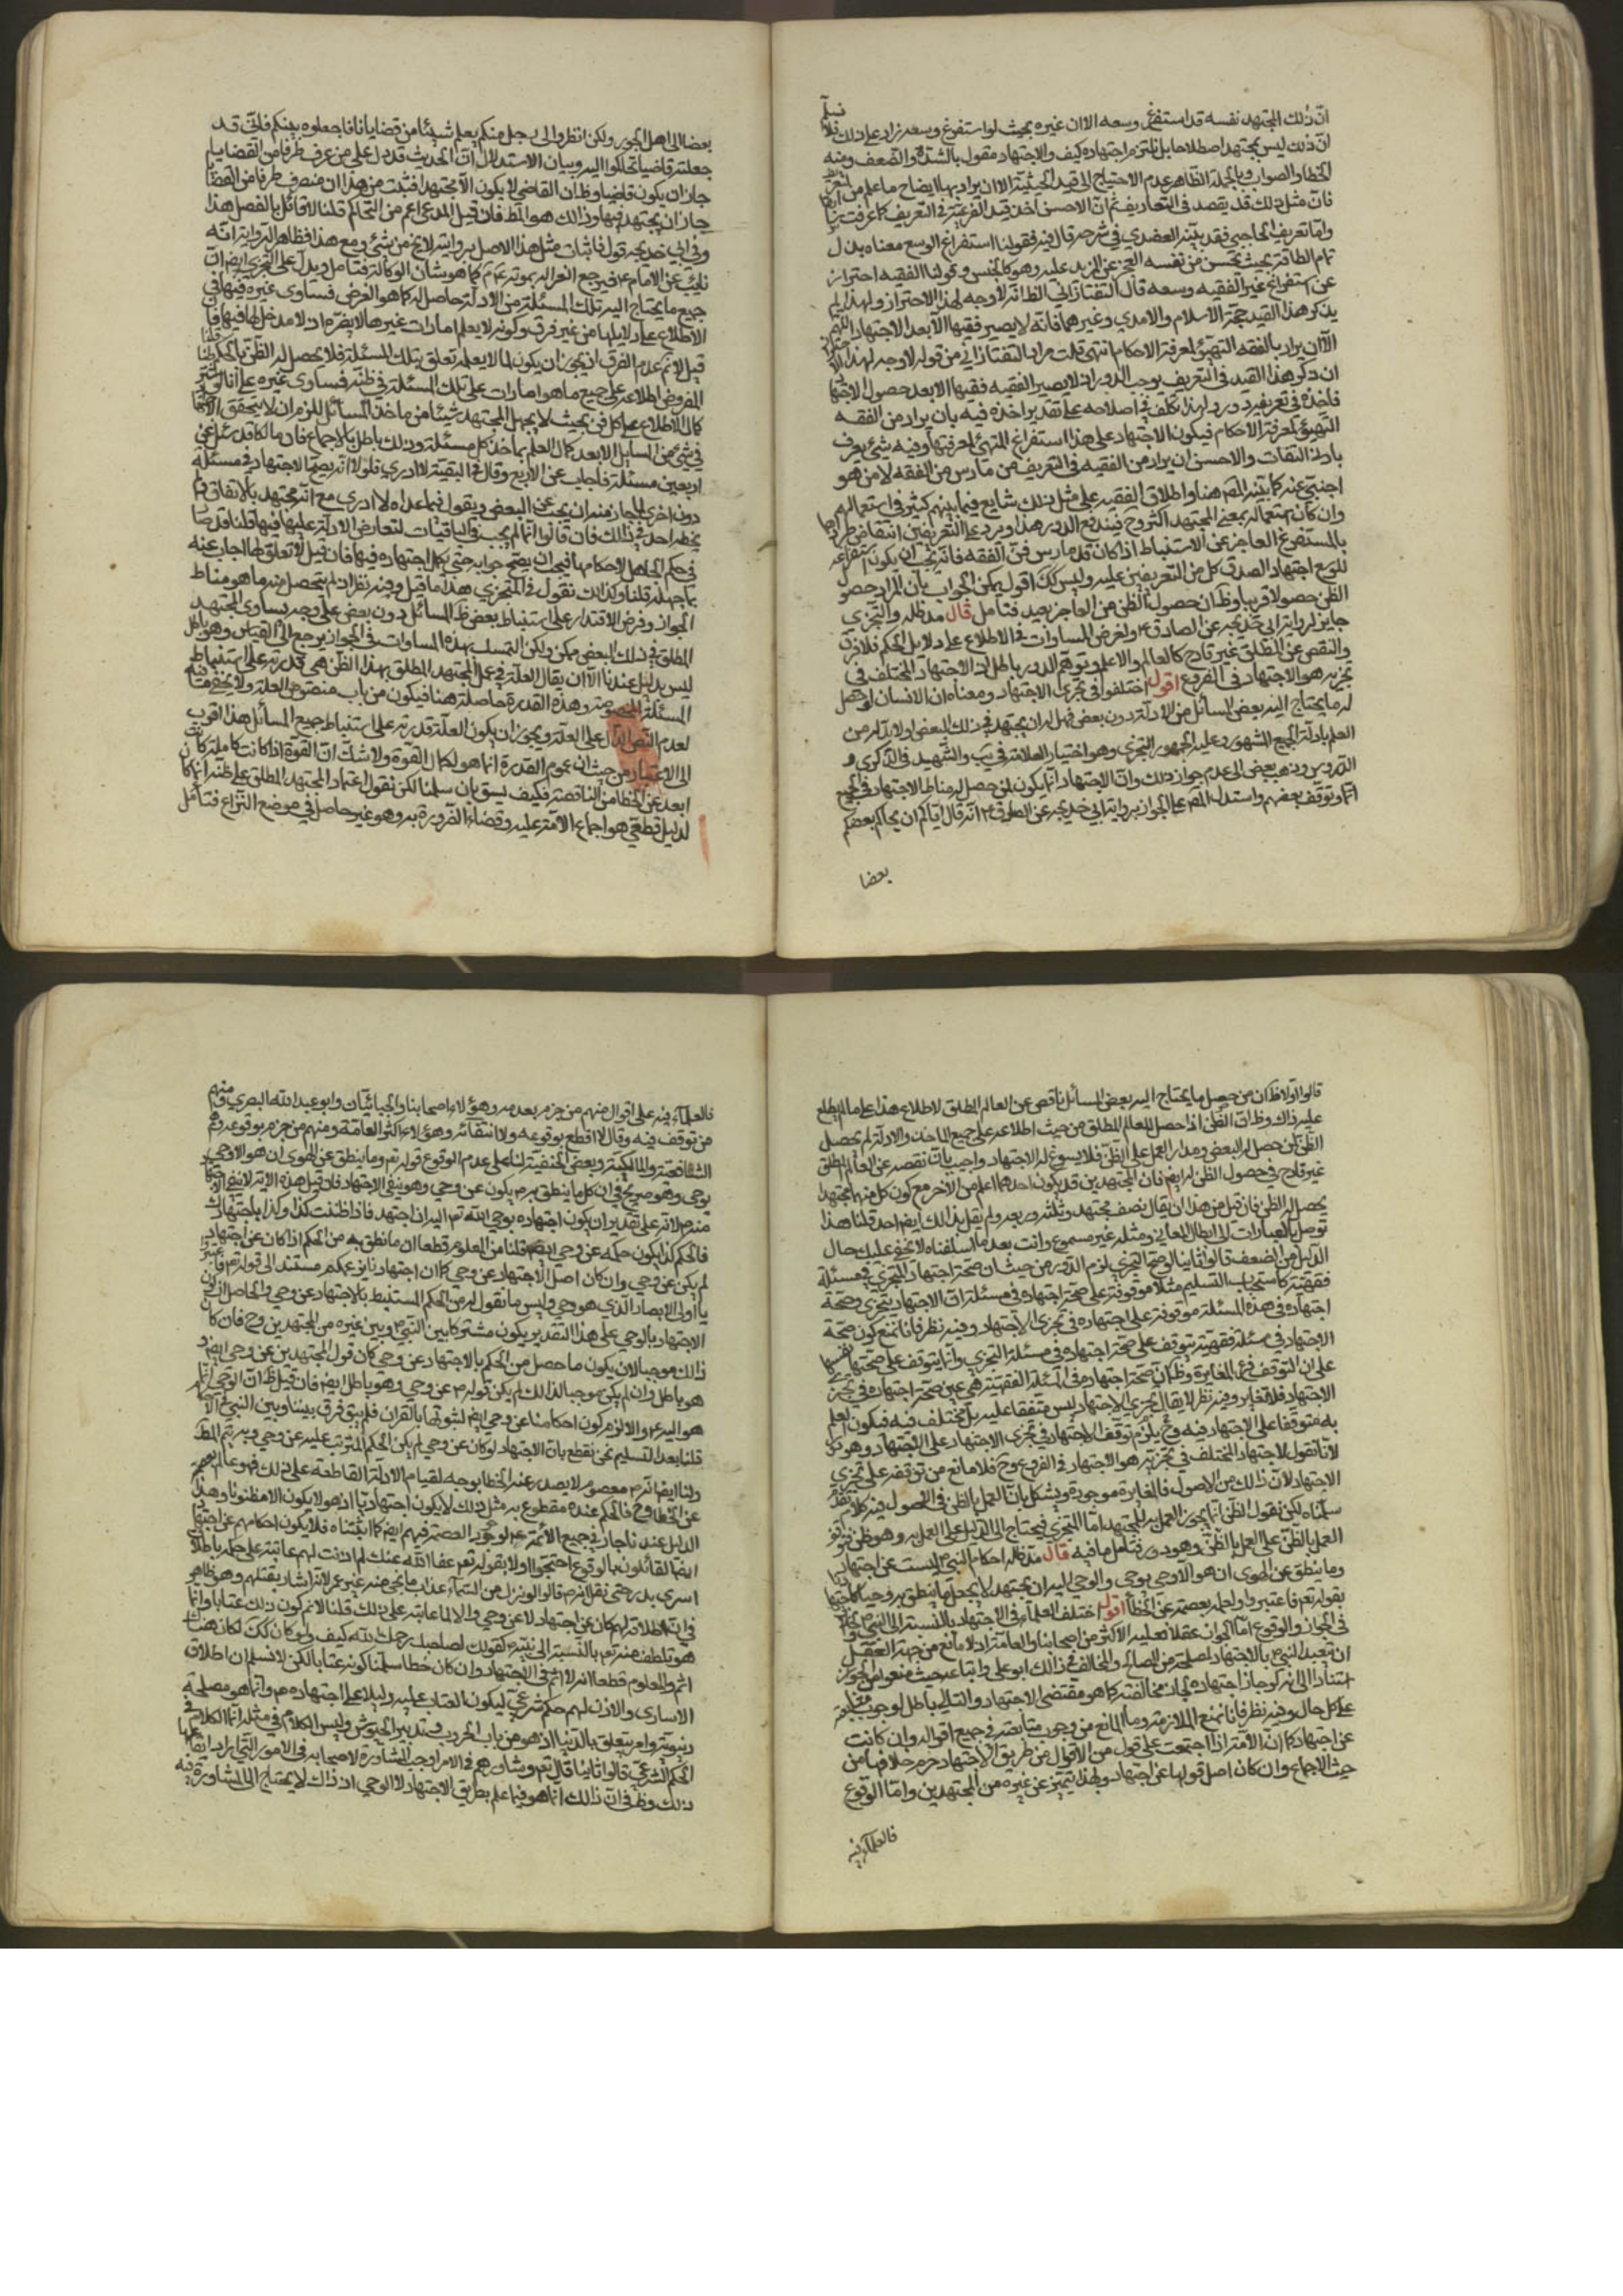 ان ذلك المجتهد نفسه قد استفرغ وسعه الا ان غيره بحيث لو استفرغ وسعه زاد على ذلك
ان ذلك ليس بمجتهد اصطلاحا بل نلتزم اجتهاده كيف والاجتهاد مقول بالشدة والضعف ومنه
الخطا والصواب وبالجملة الظاهر عدم الاحتياج الى قيد الحيثية الا ان يراد بها ايضاح ما علم من
فان مثل ذلك قد يقصد في التعاريف ثم ان الاحسن اخذ قيد الفرعية في التعريف كما عرفت
واما تعريف الحاجبي فقد بينه العضدي في شرحه قال فيه فقولنا استفراغ الوسع معناه بذل
تمام الطاقة بحيث يحس من نفسه العجز عن المزيد عليه وهو كالجنس وقولنا الفقيه احتراز
عن استفراغ غير الفقيه وسعه قال التفتازاني الظاهر لا وجه لهذا الاحتراز ولهذا لم
يذكر هذا القيد حجة الاسلام والامدي وغيرهما فانه لا يصير فقيها الا بعد الاجتهاد اللهم
الا ان يراد بالفقه التهيؤ لمعرفة الاحكام انتهى قلت مراد التفتازاني من قوله لا وجه لهذا
ان ذكر هذا القيد في التعريف يوجب الدور اذ لا يصير الفقيه فقيها الا بعد حصول الاجتهاد
فاخذه في تعريفه دور ولهذا تكلف في اصلاحه على تقدير اخذه فيه بان يراد من الفقه
التهيؤ لمعرفة الاحكام فيكون الاجتهاد على هذا استفراغ المتهيئ لمعرفتها وفيه شيء يعرف
بادنى التفات والاحسن ان يراد من الفقيه في التعريف من مارس من الفقه لا من هو
اجنبي عنه كما بينه المصـ هنا واطلاق الفقيه على مثل ذلك شايع فيما بينهم كثير في استعمالهم
وان كان استعماله بمعنى المجتهد اكثر وح فيندفع الدور هذا ويرد على التعريفين انتقاض طردهما
بالمستفرغ العاجز عن الاستنباط اذا كان قد مارس فن الفقه فانه يجب ان يكون استفراغه
للوسع اجتهادا لصدق كل من التعريفين عليه وليس كك اقول يمكن الجواب بان المراد حصول
الظن حصولا قريبا وظ ان حصول الظن من العاجز بعيد فتامل قال مد ظله والتجزي
جايز لرواية ابي خديجة عن الصادق ع ولفرض المساوات في الاطلاع على دلايل الحكم فلا فرق
والنقص عن المطلق غير قادح كالعالم والاعلم وتوهم الدور باطل اذ الاجتهاد المختلف في
تجزيه هو الاجتهاد في الفروع اقول اختلفوا في تجزي الاجتهاد ومعناه ان الانسان لو حصل
له ما يحتاج اليه بعض المسائل من الادلة دون بعض فهل له ان يجتهد في ذلك البعض اولا بد له من
العلم بادلة الجميع المشهور وعليه الجمهور التجزي وهو اختيار العلامة في يب والشهيد في الذكرى و
الدروس وذهب بعض الى عدم جواز ذلك وان الاجتهاد انما يكون لمن حصل له مناط الاجتهاد في الجميع
وتوقف بعضهم واستدل المصـ على الجواز برواية ابي خديجة عن الصادق ع انه قال اياكم ان يحاكم بعضكم
بعضا
بعضا الى اهل الجور ولكن انظروا الى رجل منكم يعلم شيئا من قضايانا فاجعلوه بينكم فاني قد
جعلته قاضيا فتحاكموا اليه وبيان الاستدلال ان الحديث قد دل على من عرف طرفا من القضايا
جاز ان يكون قاضيا وظ ان القاضي لا يكون الا مجتهدا فثبت من هذا ان من عرف طرفا من القضايا
جاز ان يجتهد فيها وذلك هو المط فان قيل المدعى اعم من التحاكم قلنا لا قائل بالفصل هذا
وفي ابي خديجة قول فاثبات مثل هذا الاصل بروايته لا يخ من شيء ومع هذا فظاهر الرواية انه
نايب عن الامام ع فيرجع انعزاله بموته ع كما هو شان الوكالة فتامل ويدل على التجزي ايضا ان
جميع ما يحتاج اليه تلك المسئلة من الادلة حاصل له كما هو الفرض فساوى غيره فيها في
الاطلاع على دلايلها من غير فرق وكونه لا يعلم امارات غيرها لا يضره اذ لا مدخل لها فيها فان
قيل لا نم عدم الفرق اذ يجوز ان يكون لما لا يعلمه تعلق بتلك المسئلة فلا يحصل له الظن بالحكم قلنا
المفروض اطلاعه على جميع ما هو امارات على تلك المسئلة في ظنه فساوى غيره على انا لو
كمال الاطلاع على كل فن بحيث لا يجهل المجتهد شيئا من ماخذ المسائل للزم ان لا يتحقق الاجتهاد
في شيء من المسايل الا بعد كمال العلم بماخذ كل مسئلة وذلك باطل بالاجماع فان مالكا قد سئل عن
اربعين مسئلة فاجاب عن الاربع وقال في البقية لا ادري فلولا انه يصح الاجتهاد في مسئلة
دون اخرى لما جاز منه ان يجيب عن البعض ويقول فيما عداه لا ادري مع انه مجتهد بالاتفاق ولم
يخطه احد في ذلك فان قالوا انما لم يجب في الباقيات لتعارض الادلة عليها فيها قلنا قد
في حكم الجاهل لاحكامها فيجب ان يصح جوابه حتى يكمل اجتهاده فيها فان قيل لا تعلق لما اجاب عنه
بما جهله قلنا وكذلك نقول في المتجزي هذا ما قيل وفيه نظر اذ لم يتحصل منه ما هو مناط
الجواز وفرض الاقتدار على استنباط بعض المسائل دون بعض على وجه يساوي المجتهد
المطلق في ذلك البعض ممكن ولكن التمسك بهذه المساوات في الجواز يرجع الى القياس وهو باطل
ليس بدليل عندنا الا ان يقال العلة في عمل المجتهد المطلق بهذا الظن هي قدرته على استنباط
المسئلة المخصوصة وهذه القدرة حاصلة هنا فيكون من باب منصوص العلة ولا يخفى ما فيه
لعدم النص الدال على العلة ويجوز ان يكون العلة قدرته على استنباط جميع المسائل هذا اقرب
الى الاعتبار من حيث ان عموم القدرة انما هو لكمال القوة ولا شك ان القوة اذا كانت كاملة كانت
ابعد عن الخطا من الناقصة فكيف يسوي بان سلمنا لكن نقول اعتماد المجتهد المطلق على ظنه انما كان
لدليل قطعي هو اجماع الامة عليه وقضاء الضرورة به وهو غير حاصل في موضع النزاع فتامل
قالوا اولا ظ ان من حصل ما يحتاج اليه بعض المسائل ناقص عن العالم المطلق لاطلاع هذا على ما لم يطلع
عليه ذاك وظ ان الظن اذا حصل للعالم المطلق من حيث اطلاعه على جميع الماخذ والادلة لم يحصل
الظن لمن حصل له البعض ومدار العمل على الظن فلا يسوغ له الاجتهاد واجيب بان نقصه عن العالم المطلق
غير قادح في حصول الظن له ايضا فان المجتهدين قد يكون احدهما اعلم من الاخر مع كون كل منهما مجتهدا
يحصل له الظن فان قيل من هذا ان يقال نصف مجتهد وثلثه وربعه ولم يقل بذلك ايضا احد قلنا هذا
توصل بالعبارات الى ابطال المعاني ومثله غير مسموع وانت بعد ما اسلفناه لا يخفى عليك حال
الدليل من الضعف قالوا ثانيا لو صح التجزي لزم الدور من حيث ان صحة اجتهاد المتجزي في مسئلة
فقهية كاستحباب التسليم مثلا موقوفة على صحة اجتهاده في مسئلة ان الاجتهاد يتجزى وصحة
اجتهاده في هذه المسئلة موقوفة على اجتهاده في تجزي الاجتهاد وفيه نظر فانا نمنع كون صحة
الاجتهاد في مسئلة فقهية يتوقف على صحة اجتهاده في مسئلة التجزي وانما يتوقف على صحتها نفسها
على ان التوقف فرع المغايرة وظ ان صحة اجتهاده في المسئلة الفقهية هي عين صحة اجتهاده في تجزي
الاجتهاد فلا تغاير وفيه نظر لا يقال تجزي الاجتهاد ليس متفقا عليه بل مختلف فيه فيكون العلم
به متوقفا على الاجتهاد فيه وح يلزم توقف الاجتهاد في تجزي الاجتهاد على الاجتهاد وهو دور
لانا نقول الاجتهاد المختلف في تجزيه هو الاجتهاد في الفروع وح فلا مانع من توقفه على تجزي
الاجتهاد لان ذلك من الاصول فالمغايرة موجودة ويشكل بان العمل بالظن في الاصول فيه كلام
سلمناه لكن نقول الظن انما يجوز العمل به للمجتهد اما المتجزي فيحتاج الى الدليل على العمل به وهو ظن
العمل بالظن على العمل بالظن وهو دور فتامل ما فيه قال مد ظله احكام النبي ص ليست عن اجتهاد
وما ينطق عن الهوى ان هو الا وحي يوحى والوحي اليه ان يجتهد لا يجعل ما ينطق به وحيا
بقوله تعم فاعتبروا ولعله بعصمته عن الخطا اقول اختلف العلماء في الاجتهاد بالنسبة الى النبي ص
في الجواز والوقوع اما الجواز عقلا فعليه الاكثر من اصحابنا والعامة اذ لا مانع من جهة العقل
ان يتعبد النبي ص بالاجتهاد لمصلحة من المصالح والمخالف في ذلك ابو علي واتباعه حيث منعوا من الجواز
استنادا الى انه لو جاز اجتهاده لجاز مخالفته كما هو مقتضى الاجتهاد والتالي باطل لوجوب متابعته
على كل حال وفيه نظر فانا نمنع الملازمة وما المانع من وجوب متابعته في جميع اقواله وان كانت
عن اجتهاد كما ان الامة اذا اجتمعت على قول من الاقوال من طريق الاجتهاد حرم خلافها من
حيث الاجماع وان كان اصل قولها عن اجتهاد وبهذا يتميز عن غيره من المجتهدين واما الوقوع
فالعلماء فيه
فالعلماء فيه على اقوال منهم من جزم بعدمه وهؤلاء اصحابنا والجبائيان وابو عبد الله البصري ومنهم
من توقف فيه وقال لا اقطع بوقوعه ولا انتفائه وهؤلاء اكثر العامة ومنهم من جزم بوقوعه وهم
الشافعية والمالكية وبعض الحنفية لنا على عدم الوقوع قوله تع وما ينطق عن الهوى ان هو الا وحي
يوحى وهو صريح في ان كل ما ينطق به ص يكون عن وحي وهو ينفي الاجتهاد فان قيل هذه الاية لا تنفي
منه ص لانه على تقدير ان يكون اجتهاده بوحي الله تع اليه ان اجتهد فاذا ظننت كذا وكذا باجتهادك
فالحكم كذا يكون حكمه عن وحي ايضا قلنا من المعلوم قطعا ان ما نطق به من الحكم اذا كان عن اجتهاد
لم يكن عن وحي وان كان اصل الاجتهاد عن وحي كما ان اجتهادنا بزعمكم مستند الى قوله تع فاعتبروا
يا اولي الابصار الذي هو وحي وليس ما نقول به من الحكم المستنبط بالاجتهاد عن وحي والحاصل ان كون
الاجتهاد بالوحي على هذا التقدير يكون مشتركا بين النبي ص وبين غيره من المجتهدين وح فان كان
ذلك موجبا لان يكون ما حصل من الحكم بالاجتهاد عن وحي كان قول المجتهدين عن وحي ايضا و
هو باطل وان لم يكن موجبا لذلك لم يكن قوله ص عن وحي وهو باطل ايضا فان قيل ظ ان الوحي انما
هو اليه ع والا لزم كون احكامنا عن وحي ايضا لثبوتها بالقران فلم يبق فرق بيننا وبين النبي ص
قلنا بعد التسليم نحن نقطع بان الاجتهاد لو كان عن وحي لم يكن الحكم المترتب عليه عن وحي وبه يتم المط
ولنا ايضا انه ص معصوم لا يصدر عنه الخطا بوجه لقيام الادلة القاطعة على ذلك فهو عالم بعصمته
عن الخطا وح فالحكم عنده مقطوع به مثل ذلك لا يكون اجتهاديا اذ هو لا يكون الا مظنونا وهذا
الدليل عندنا جار في جميع الائمة ع لوجود العصمة فيهم ايضا كما اثبتناه فلا يكون احكامهم عن اجتهاد
ايضا القائلون بالوقوع احتجوا اولا بقوله تع عفا الله عنك لم اذنت لهم عاتبه على حكمه باطلاق
اسرى بدر حتى نقل انه ص قال لو نزل من السماء عذاب ما نجى منه غير عمر لانه اشار بقتلهم وهو ظاهر
في ان اطلاقه لهم كان عن اجتهاد لا عن وحي والا لما عاتبه على ذلك قلنا لا نم كون ذلك عتابا وانما
هو تلطف منه تع بالنسبة الى نبيه ص كقولك لصاحبك رحمك الله كيف ولو كان كك لكان هناك
اثم والمعلوم قطعا انه لا اثم في الاجتهاد وان كان خطا سلمنا كونه عتابا لكن لا نسلم ان اطلاق
الاسارى والاذن لهم حكم شرعي ليكون العتاب عليه دليلا على اجتهاده ص وانما هو مصلحة
دنيوية وامر يتعلق بالدنيا اذ هو من باب الحروب وتدبير الجيوش وليس الكلام في مثله انما الكلام في
الحكم الشرعي قالوا ثانيا قال تع وشاورهم في الامر اوجب المشاورة لاصحابه في الامور التي يراد ايقاعها
ذلك وظ في ان ذلك انما هو فيما علم بطريق الاجتهاد لا الوحي اذ ذاك لا يحتاج الى المشاورة فيه